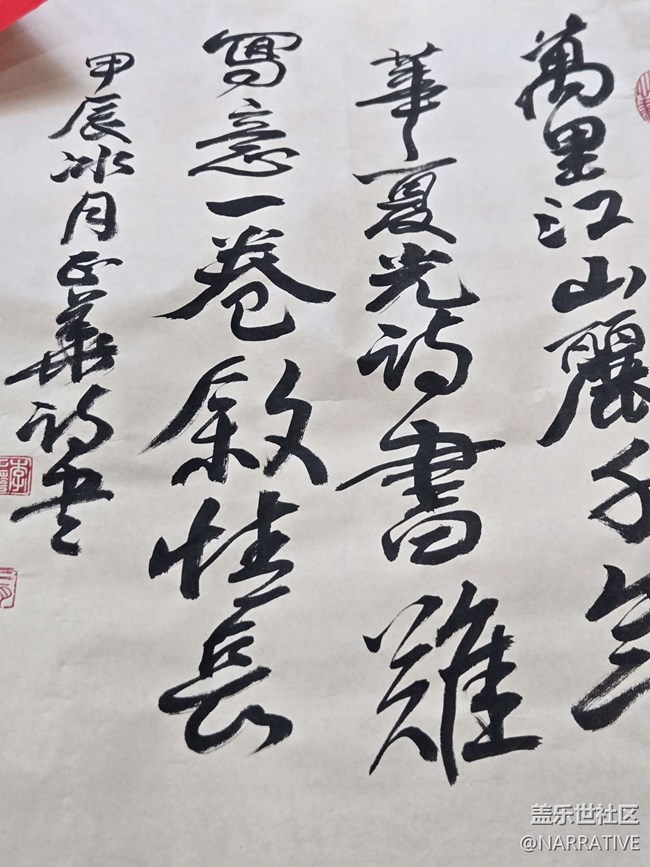 萬里江山麗千年
華夏光詩書難
寫意一卷敘情長
甲辰冰月正華詩书
盖乐世社区
@NARRATIVE